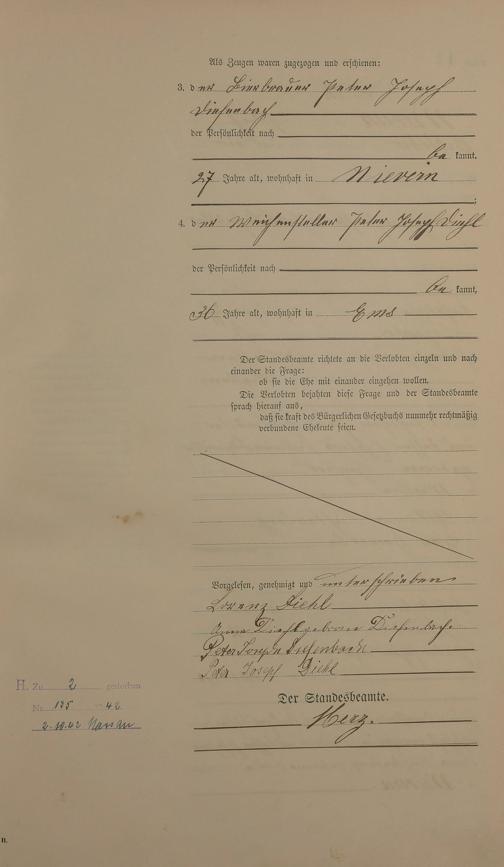 Als Zeugen waren zugezogen und erschienen:
3. der Bierbrauer Peter Joseph
Diefenbach
der Persönlichkeit nach
be kannt,
27 Jahre alt, wohnhaft in Nievern
4. der Weichensteller Peter Joseph Diehl
der Persönlichkeit nach
be kannt,
36 Jahre alt, wohnhaft in Ems
Der Standesbeamte richtete an die Verlobten einzeln und nach
einander die Frage:
ob sie die Ehe mit einander eingehen wollen.
Die Verlobten bejahten diese Frage und der Standesbeamte
sprach hierauf aus,
daß sie kraft des Bürgerlichen Gesetzbuchs nunmehr rechtmäßig
verbundene Eheleute seien.
Vorgelesen, genehmigt und unterschrieben
Lorenz Diehl
Anna Diehl geborene Diefenbach
Peter Joseph Diefenbach
Peter Joseph Diehl
Der Standesbeamte.
Merz.
H. Zu 2 gestorben
Nr. 175 42
2.10.42 Nassau
B.